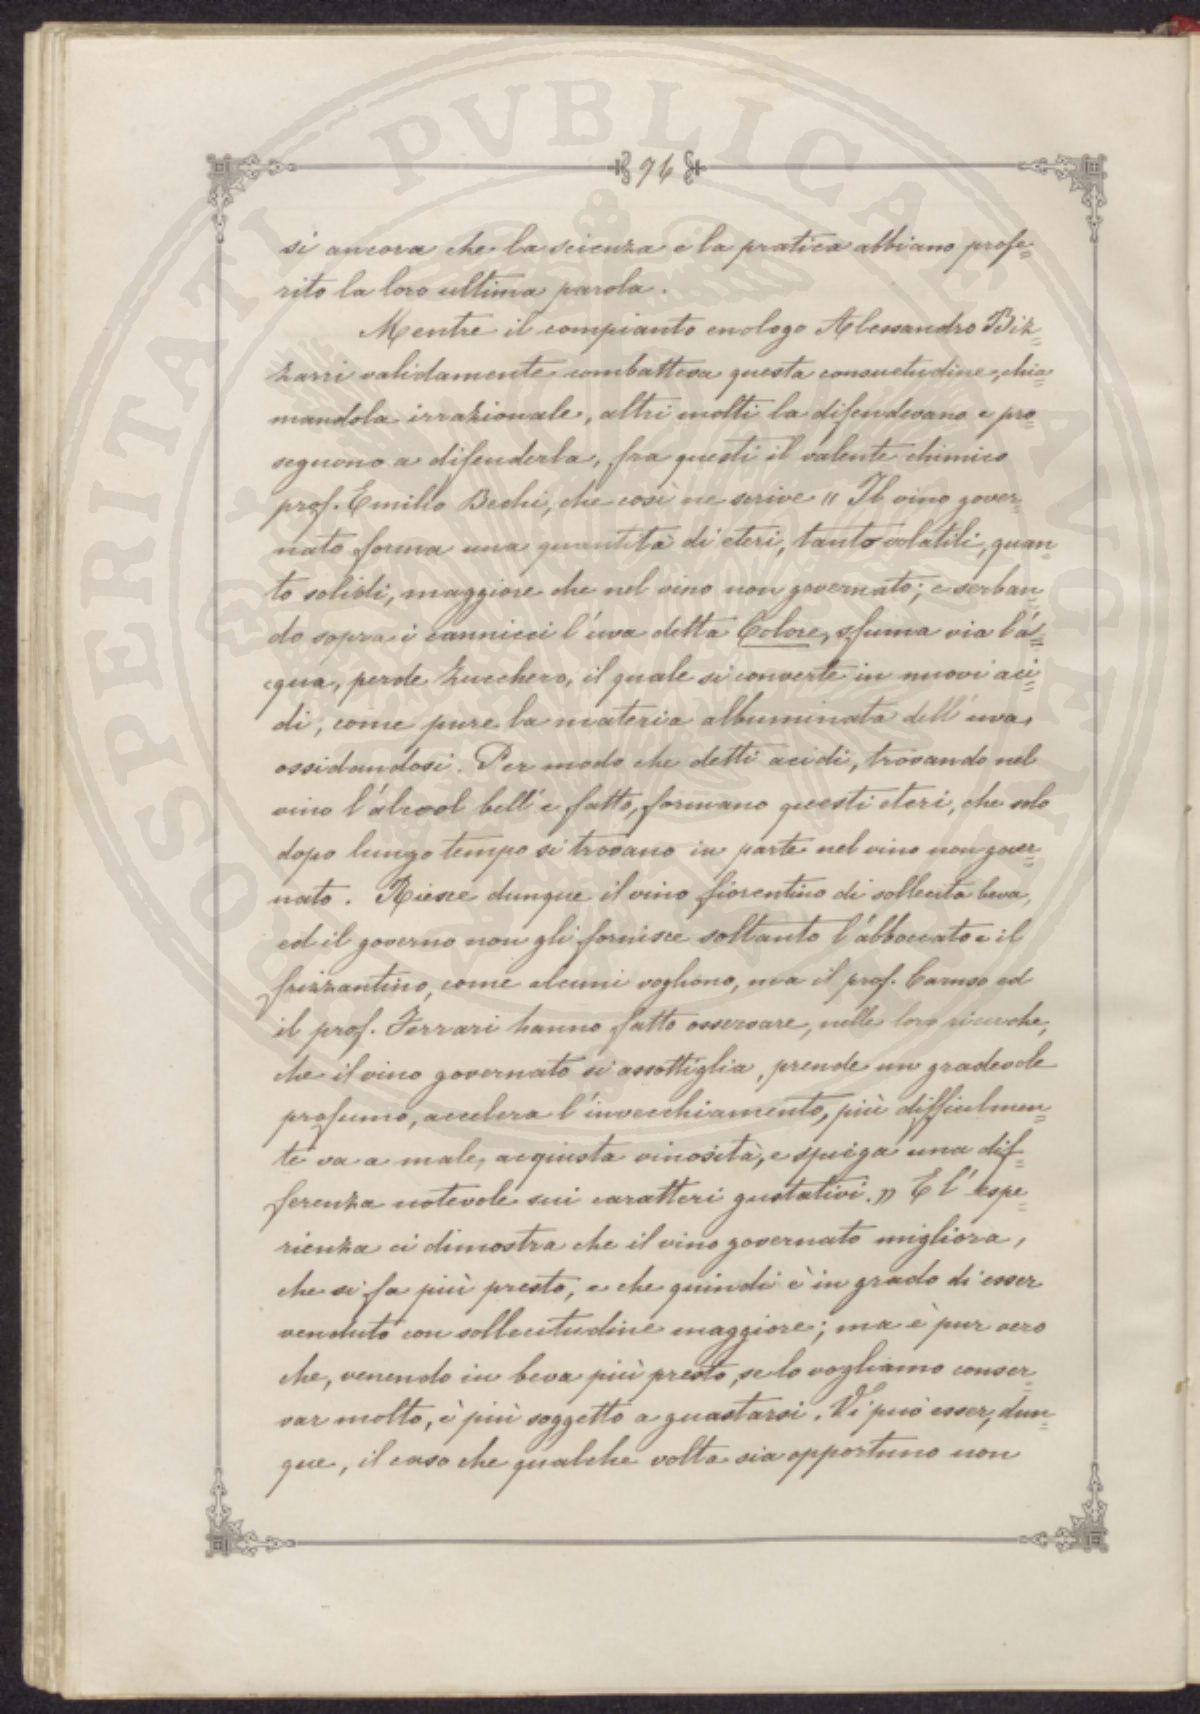 96
si ancora che la scienza e la pratica abbiano profe=
rito la loro ultima parola.
Mentre il compianto enologo Alessandro Biz=
zarri validamente combatteva questa consuetudine, chia=
mandola irrazionale, altri molti la difendevano e pro=
seguono a difenderla, fra questi il valente chimico
prof. Emilio Bechi, che così ne scrive " Il vino gover=
nato forma una quantità di eteri, tanto volatili, quan=
to solidi, maggiore che nel vino non governato; e serban=
do sopra i cannicci l'uva detta Colore, sfuma via l'a=
cqua, perde zucchero, il quale si converte in nuovi aci=
di, come pure la materia albuminata dell'uva,
ossidandosi. Per modo che detti acidi, trovando nel
vino l'alcool bell'e fatto, formano questi eteri, che solo
dopo lungo tempo si trovano in parte nel vino non gover=
nato. Riesce dunque il vino fiorentino di sollecita beva,
ed il governo non gli fornisce soltanto l'abboccato e il
frizzantino, come alcuni vogliono, ma il prof. Caruso ed
il prof. Ferrari hanno fatto osservare, nelle loro ricerche,
che il vino governato si assottiglia, prende un gradevole
profumo, accelera l'invecchiamento, più difficilmen=
te va a male, acquista vinosità, e spiega una dif=
ferenza notevole sui caratteri gustativi. " E l'espe=
rienza ci dimostra che il vino governato migliora,
che si fa più presto, e che quindi è in grado di esser
venduto con sollecitudine maggiore; ma è pur vero
che, venendo in beva più presto, se lo vogliamo conser=
var molto, è più soggetto a guastarsi. Vi può esser, dun=
que, il caso che qualche volta sia opportuno non
PVBLICAE